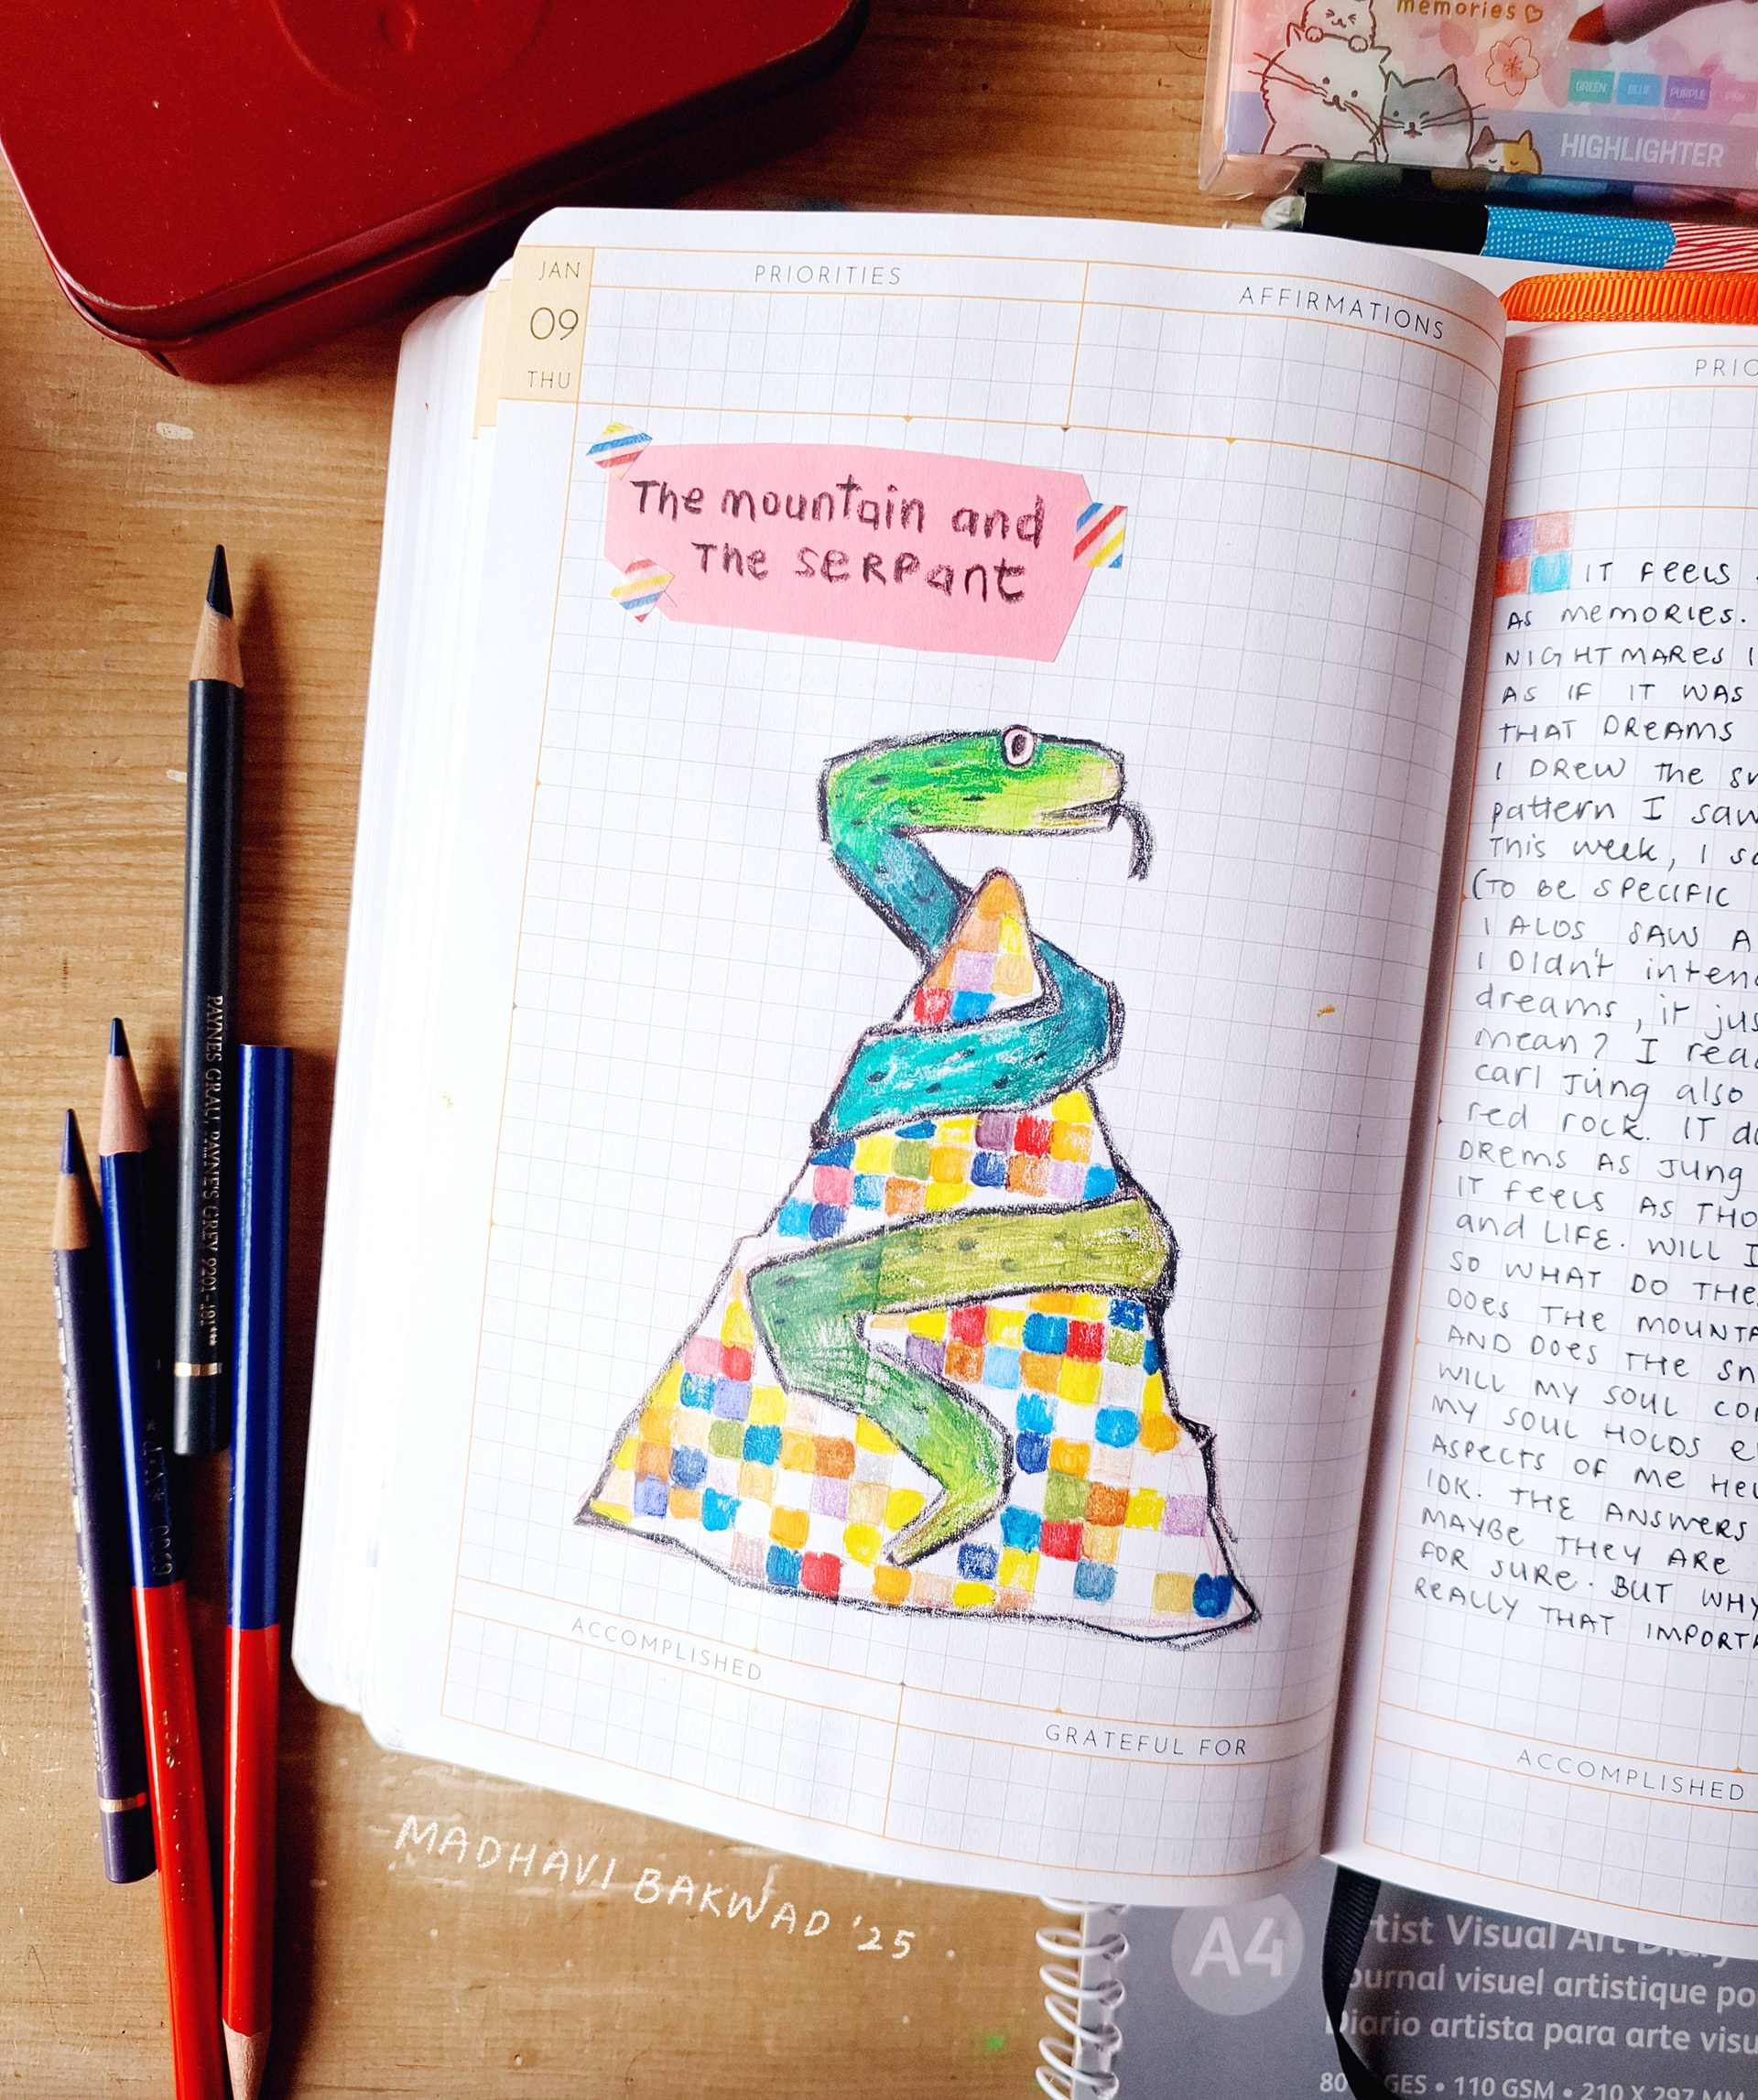 memories
GREEN BLUE PURPLE PINK
HIGHLIGHTER
JAN
09
THU
PRIORITIES
AFFIRMATIONS
The mountain and
The SERPant
ACCOMPLISHED
GRATEFUL FOR
IT FEELS
AS MEMORIES.
NIGHTMARES
AS IF IT WAS
THAT DREAMS
I DREW THE
pattern I saw
This week, I
(TO BE SPECIFIC
I ALOS SAW A
I DIDN'T intend
dreams, it
mean? I read
carl Jung also
red rock. IT
DREMS AS JUNG
IT FEELS AS
and LIFE. WILL I
SO WHAT DO
DOES THE
AND DOES THE
WILL MY SOUL
MY SOUL HOLDS
ASPECTS OF ME
IDK. THE ANSWERS
MAYBE THEY ARE
FOR SURE. BUT WHY
REALLY THAT
ACCOMPLISHED
PAYNES GRAU, PAYNE'S GREY 9201-181***
MADHAVI BAKWAD '25
A4
tist Visual Art Diary
ournal visuel artistique
Diario artista para arte
110 GSM • 210 X 297 MM